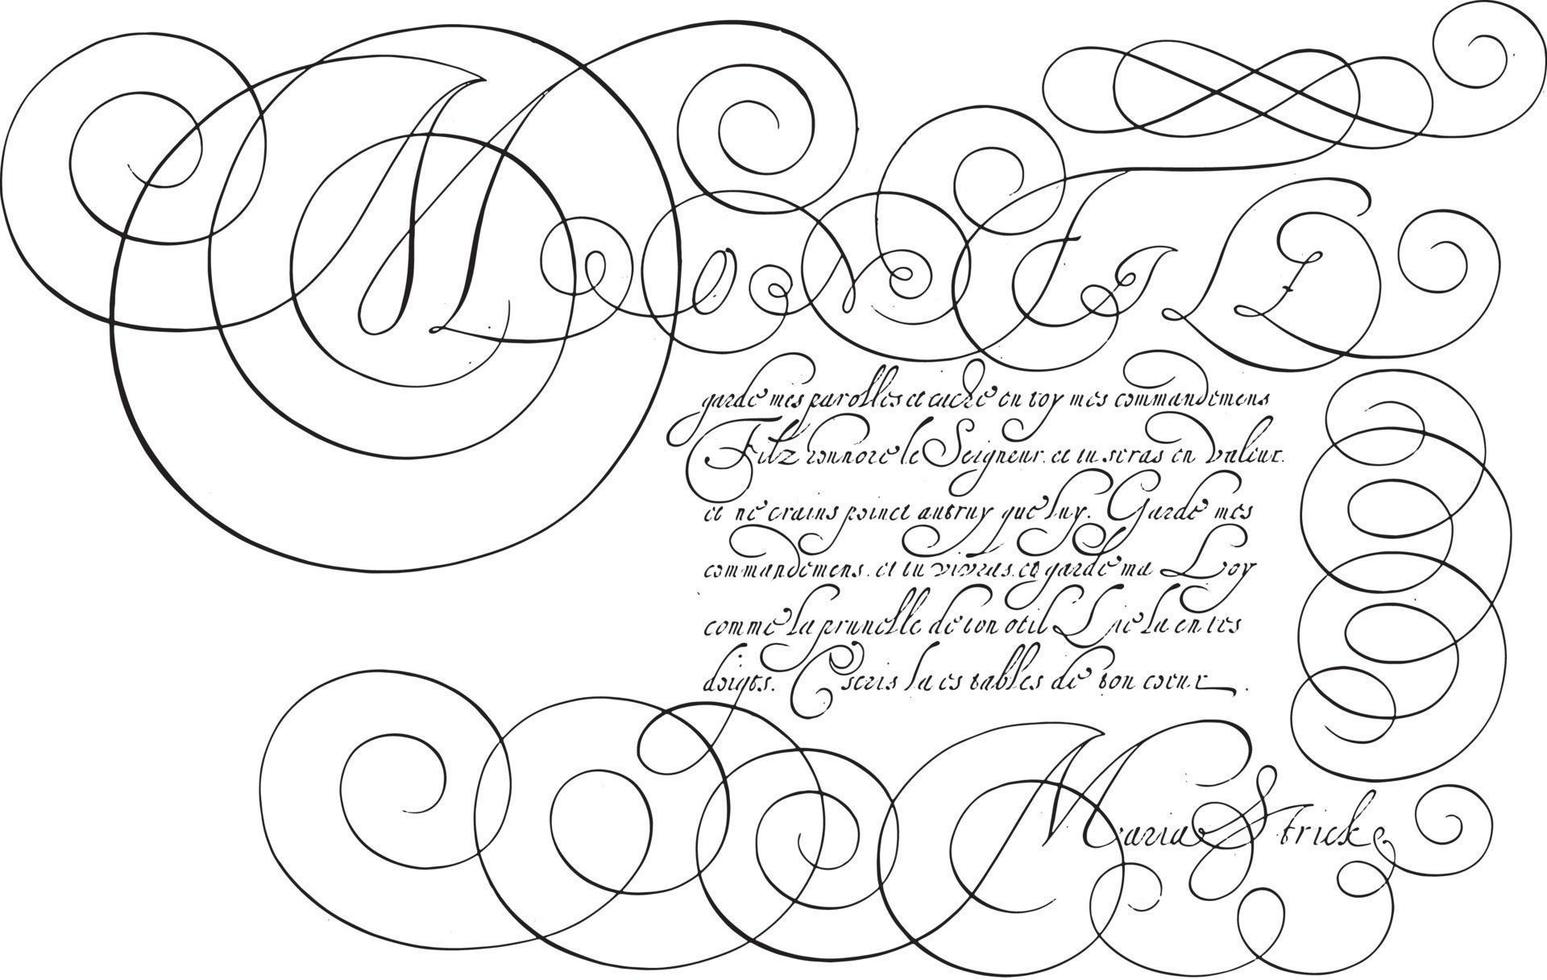 Mon Filz
garde mes parolles et cache en toy mes commandemens
Filz honnore le Seigneur. et tu seras en valeur.
et ne crains poinct autruy que luy. Garde mes
commandemens. et tu vivras. et garde ma Loy
comme la prunelle de ton oeil Lie la en tes
doigts. Escris la es tables de ton coeur.
Maria Strick